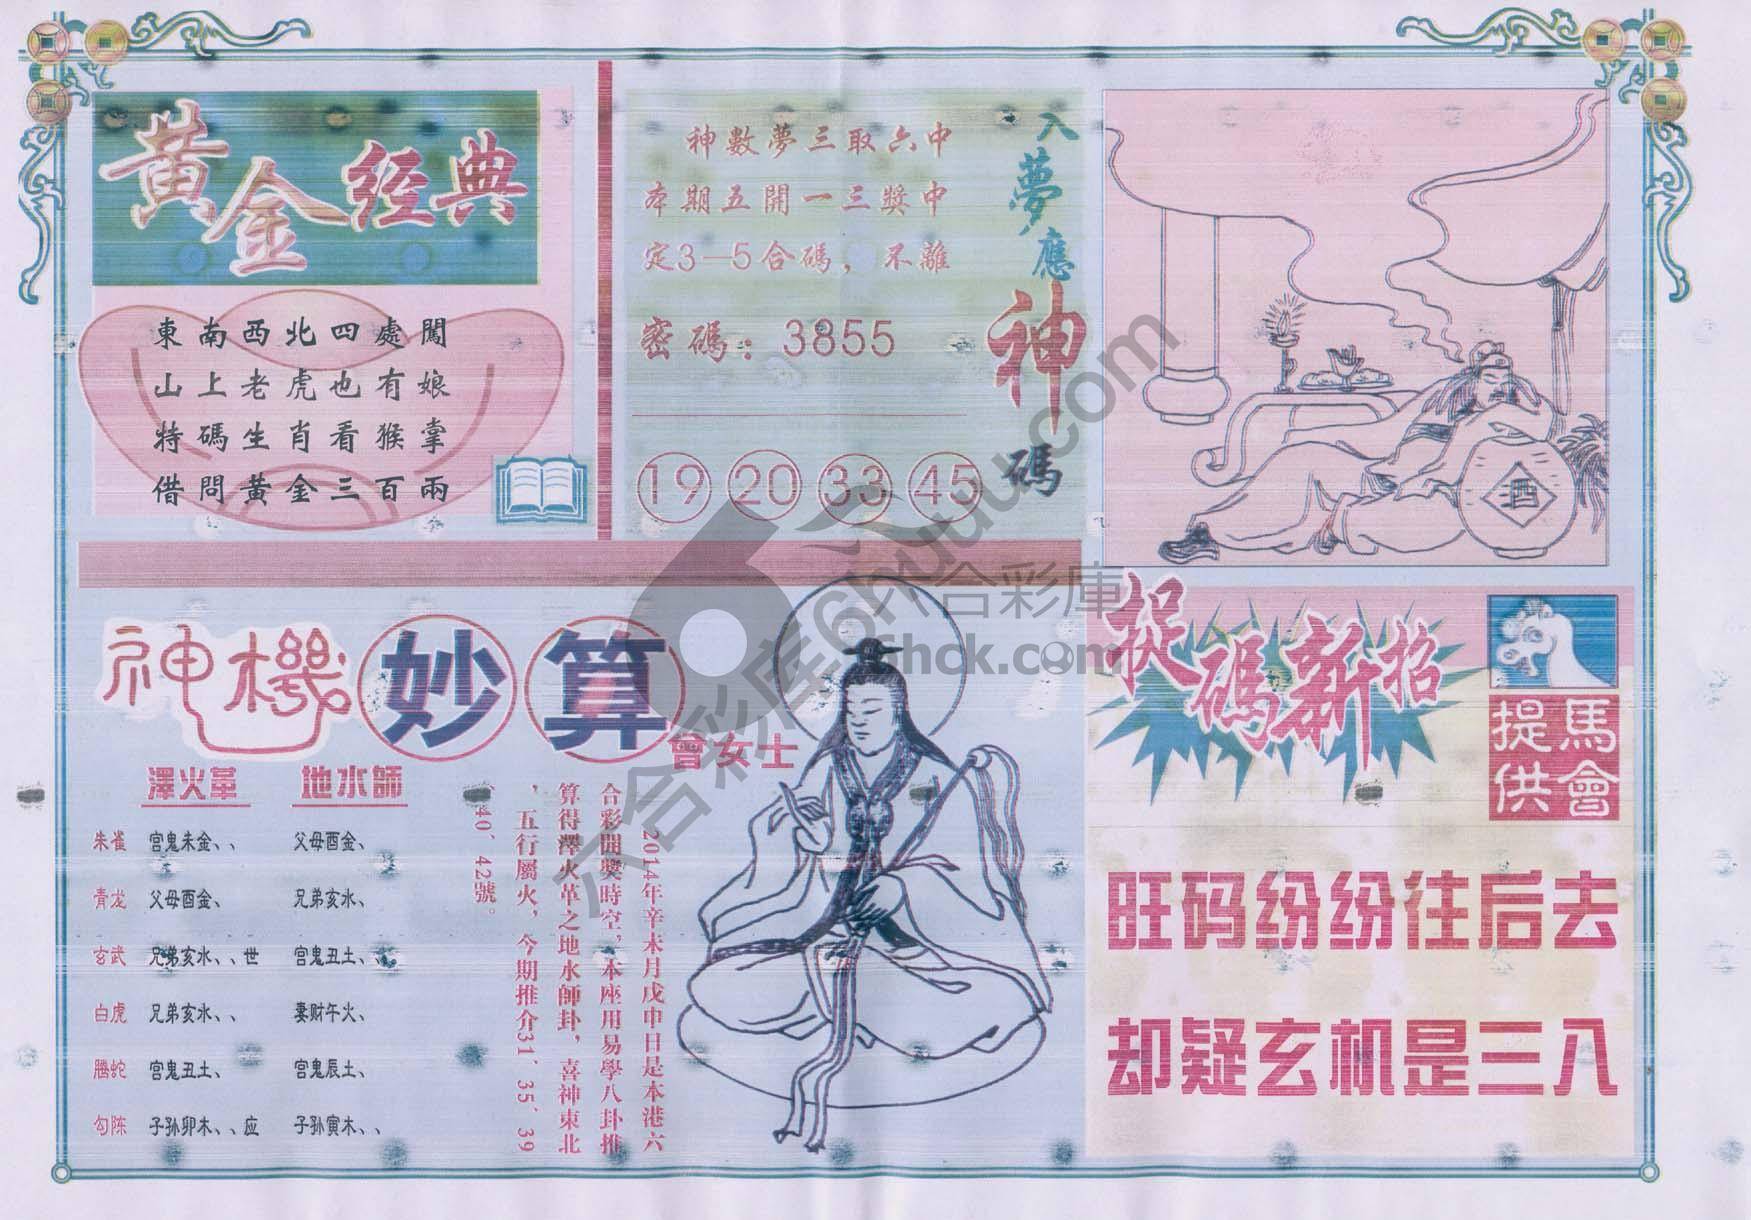 黃金經典
東南西北四處闖
山上老虎也有娘
特碼生肖看猴掌
借問黃金三百兩
入夢應神碼
神數夢三取六中
本期五開一三獎中
定3—5合碼，不離
密碼：3855
19 20 33 45
酒
神機妙算
會女士
澤火革 地水師
朱雀 宫鬼未金、、 父母酉金、
青龙 父母酉金、 兄弟亥水、
玄武 兄弟亥水、、世 宫鬼丑土、
白虎 兄弟亥水、、 妻财午火、
腾蛇 宫鬼丑土、 宫鬼辰土、
勾陈 子孙卯木、、应 子孙寅木、、
2014年辛未月戊申日是本港六
合彩開獎時空，本座用易學八卦推
算得澤火革之地水師卦，喜神東北
，五行屬火，今期推介31、35、39
、40、42號。
捉碼新招
馬會
提供
旺码纷纷往后去
却疑玄机是三八
六合彩库6hyuu.com
六合彩庫
6hck.com